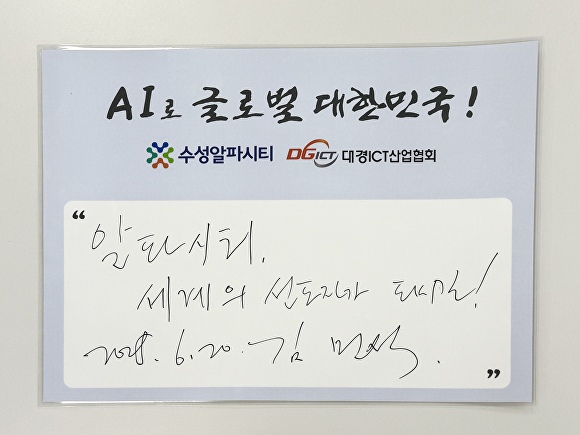 AI로 글로벌 대한민국!
수성알파시티 DGICT 대경ICT산업협회
“
알파시티,
세계의 선도자가 되시길!
6. 20. 김 민석.
”